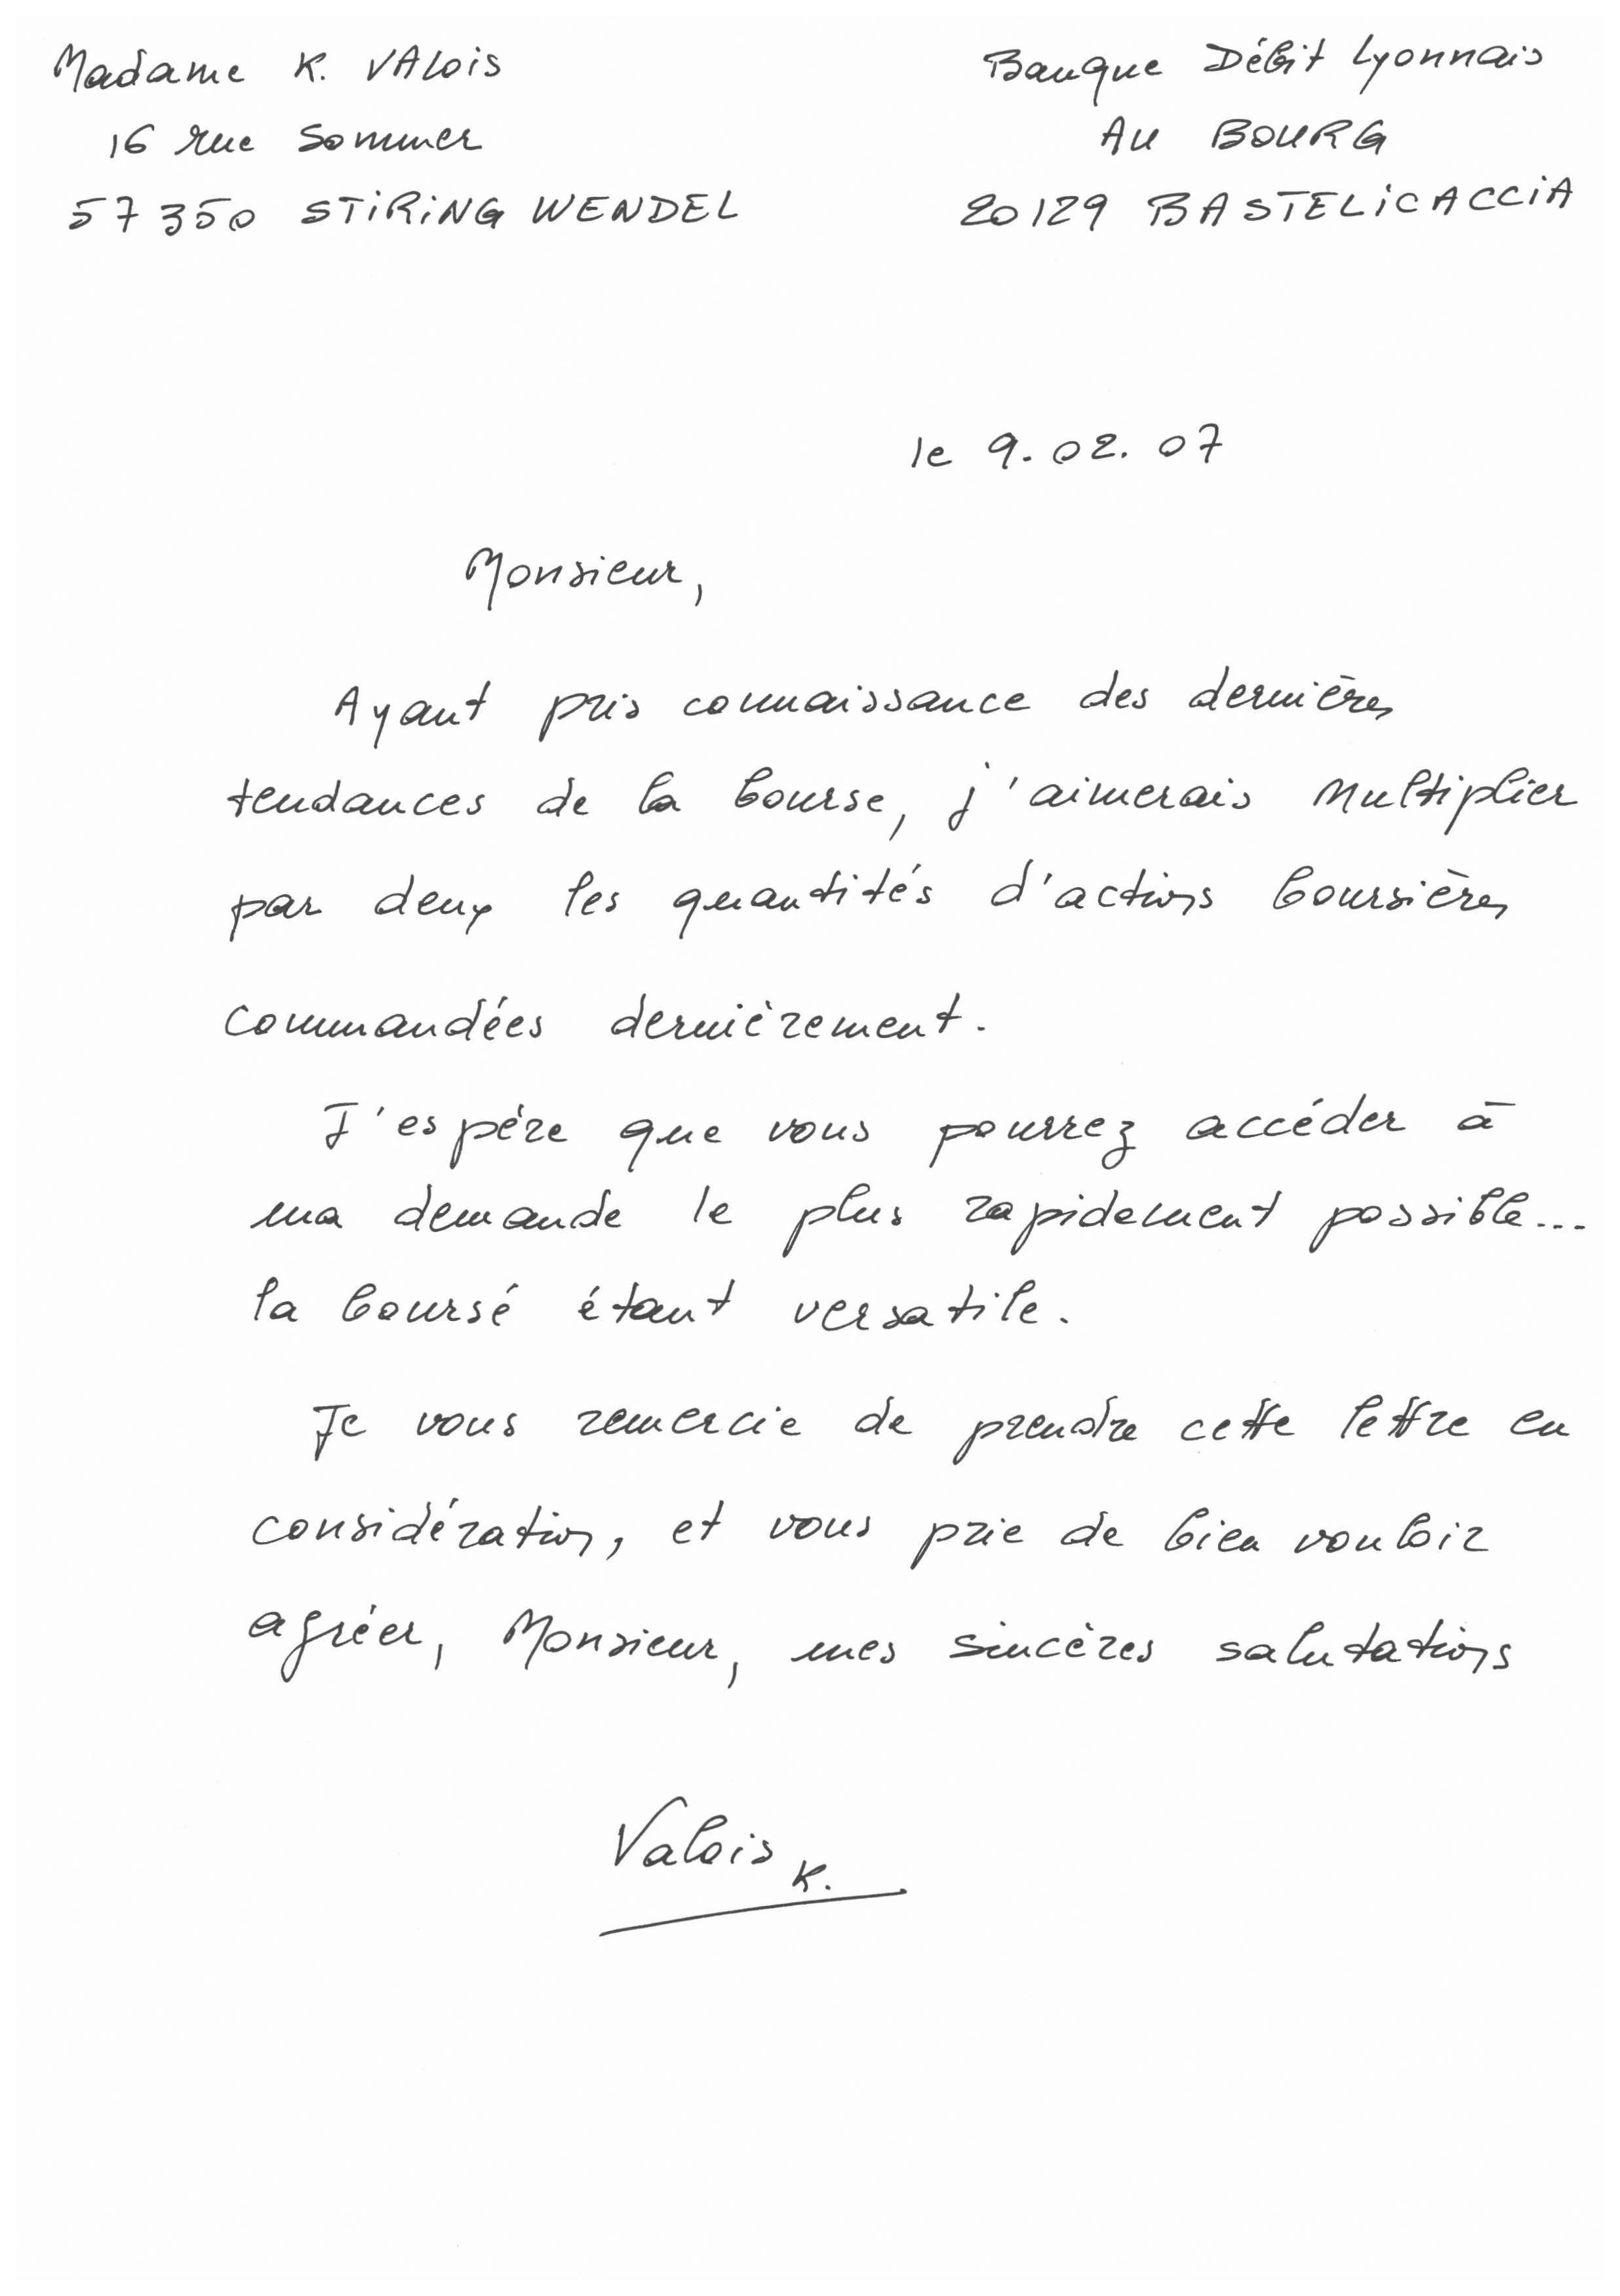 Madame K. VAlois
16 rue Sommer
57350 STiRiNG WENDEL
Banque Débit Lyonnais
Au BOURG
20129 BASTELiCACCiA
le 9.02.07
Monsieur,
Ayant pris connaissance des dernières
tendances de la bourse, j'aimerais multiplier
par deux les quantités d'actions boursières
commandées dernièrement.
J'espére que vous pourrez accéder à
ma demande le plus rapidement possible...
la boursé étant versatile.
Je vous remercie de prendre cette lettre en
considération, et vous prie de bien vouloir
agréer, Monsieur, mes sincères salutations
Valois K.